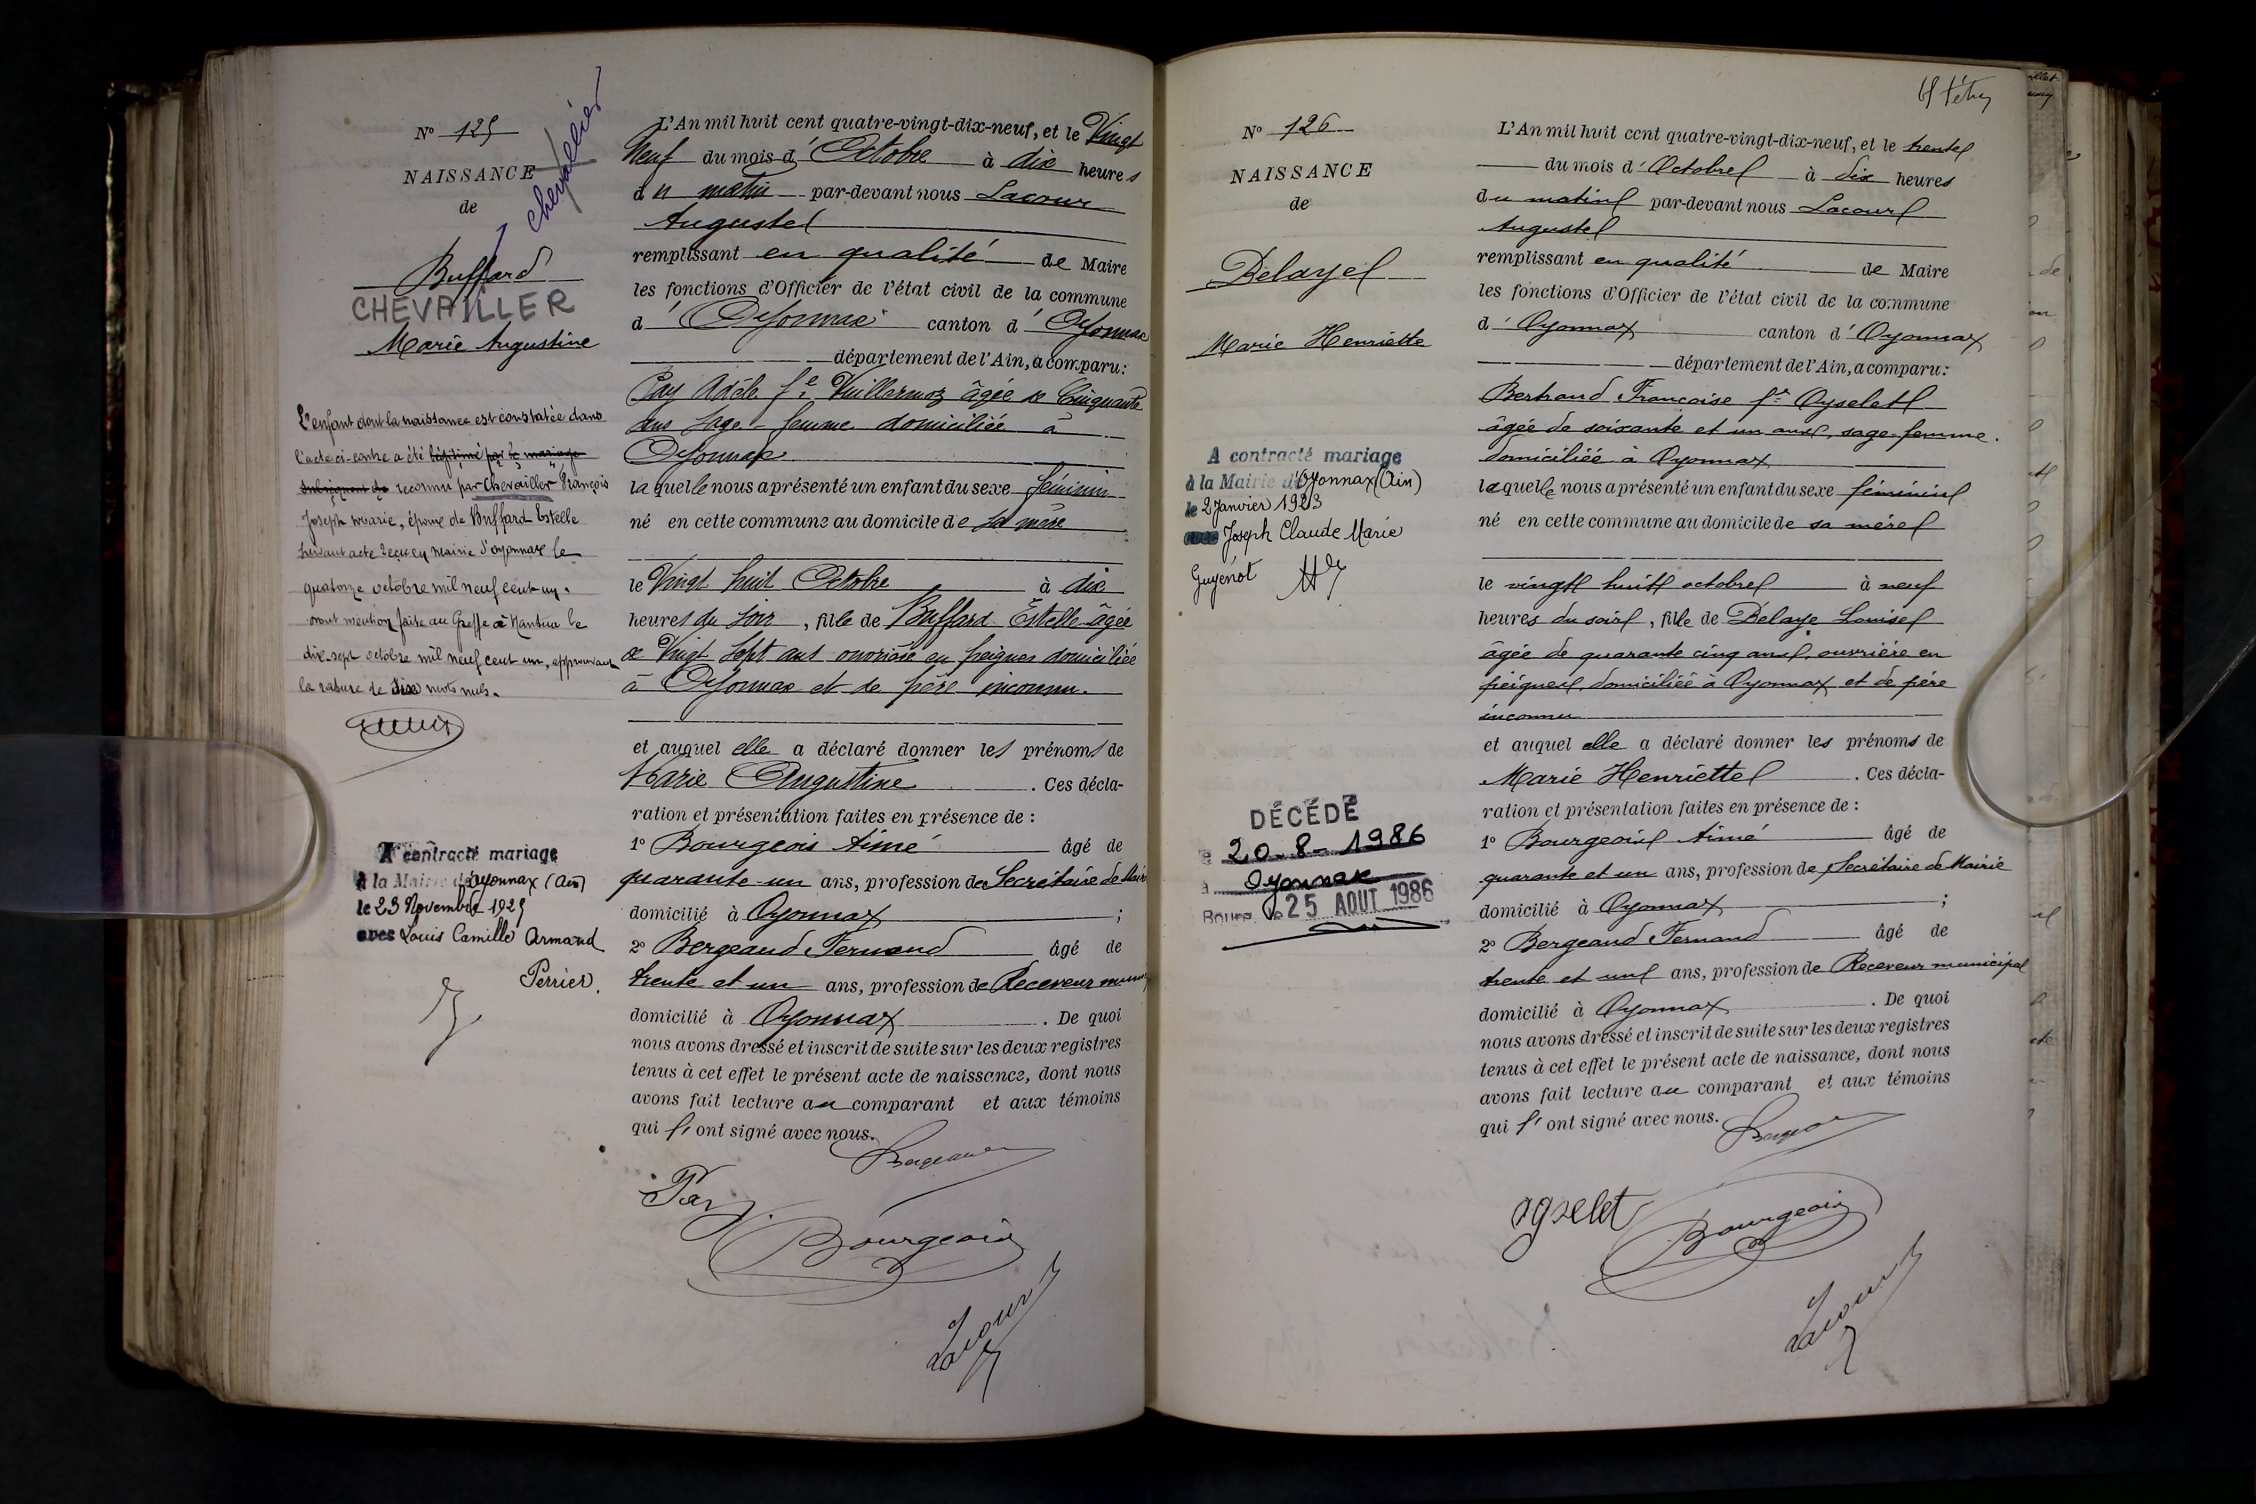 N° 125
NAISSANCE
de
Chevallier
Buffard
CHEVAILLER
Marie Augustine
L'enfant dont la naissance est constatée dans
l'acte ci-contre a été légitimé par le mariage
subséquent de reconnu par Chevailler François
Joseph Marie, époux de Buffard Estelle
suivant acte reçu en mairie d'oyonnax le
quatorze octobre mil neuf cent un.
dont mention faite au Greffe à Nantua le
dix-sept octobre mil neuf cent un, approuvant
la rature de six mots nuls.
A contracté mariage
à la Mairie d'Oyonnax (Ain)
le 23 Novembre 1925
avec Louis Camille Armand
Perrier.
L'An mil huit cent quatre-vingt-dix-neuf, et le Vingt
Neuf du mois d'Octobre à dix heures
du matin par-devant nous Lacour
Auguste
remplissant en qualité de Maire
les fonctions d'Officier de l'état civil de la commune
d'Oyonnax canton d'Oyonnax
département de l'Ain, a comparu:
Pay Adèle fe Vuillermoz âgée de Cinquante
ans sage-femme domiciliée à
Oyonnax
laquelle nous a présenté un enfant du sexe féminin
né en cette commune au domicile de sa mère
le Vingt huit Octobre à dix
heures du soir, fille de Buffard Estelle âgée
de Vingt sept ans ouvrière en peignes domiciliée
à Oyonnax et de père inconnu.
et auquel elle a déclaré donner les prénoms de
Marie Augustine. Ces décla-
ration et présentation faites en présence de :
1° Bourgeois Aimé âgé de
quarante-un ans, profession de Secrétaire de Mairie
domicilié à Oyonnax ;
2° Bergeaud Fernand âgé de
trente et un ans, profession de Receveur
domicilié à Oyonnax. De quoi
nous avons dressé et inscrit de suite sur les deux registres
tenus à cet effet le présent acte de naissance, dont nous
avons fait lecture au comparant et aux témoins
qui l'ont signé avec nous.
Bergeaud
Pay
Bourgeois
Lacour
N° 126
NAISSANCE
de
Delaye
Marie Henriette
A contracté mariage
à la Mairie d'Oyonnax (Ain)
le 2 Janvier 1923
avec Joseph Claude Marie
Guyenot
DÉCÉDÉ
20-8-1986
à Oyonnax
Bourg, le 25 AOUT 1986
L'An mil huit cent quatre-vingt-dix-neuf, et le trente
du mois d'Octobre à dix heures
du matin par-devant nous Lacour
Auguste
remplissant en qualité de Maire
les fonctions d'Officier de l'état civil de la commune
d'Oyonnax canton d'Oyonnax
département de l'Ain, a comparu:
Bertrand Françoise fe Oyselet
âgée de soixante et un ans, sage-femme.
domiciliée à Oyonnax
laquelle nous a présenté un enfant du sexe féminin
né en cette commune au domicile de sa mère
le vingt huit octobre à neuf
heures du soir, fille de Delaye Louise
âgée de quarante cinq ans, ouvrière en
peignes, domiciliée à Oyonnax et de père
inconnu
et auquel elle a déclaré donner les prénoms de
Marie Henriette. Ces décla-
ration et présentation faites en présence de :
1° Bourgeois Aimé âgé de
quarante et un ans, profession de Secrétaire de Mairie
domicilié à Oyonnax ;
2° Bergeaud Fernand âgé de
trente et un ans, profession de Receveur municipal
domicilié à Oyonnax. De quoi
nous avons dressé et inscrit de suite sur les deux registres
tenus à cet effet le présent acte de naissance, dont nous
avons fait lecture au comparant et aux témoins
qui l'ont signé avec nous.
oyselet
Bourgeois
Lacour